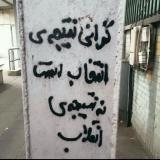 گرانی نتیجه‌ی
انتخاب است
نه نتیجه‌ی
انقلاب